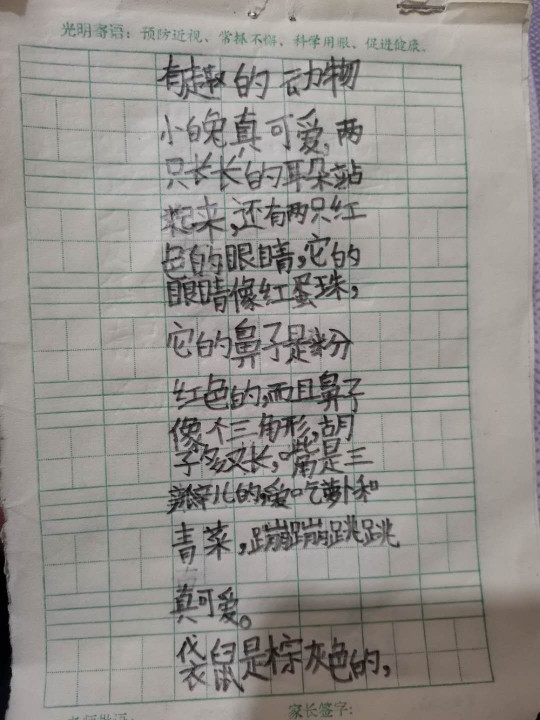 光明寄语：预防近视、常抓不懈、科学用眼、促进健康。
有趣的动物
小白兔真可爱，两
只长长的耳朵站
起来，还有两只红
色的眼睛，它的
眼睛像红蛋珠，
它的鼻子是粉
红色的，而且鼻子
像个三角形，胡
子多又长，嘴是三
瓣儿的，爱吃萝卜和
青菜，蹦蹦跳跳
真可爱。
袋鼠是棕灰色的，
家长签字：